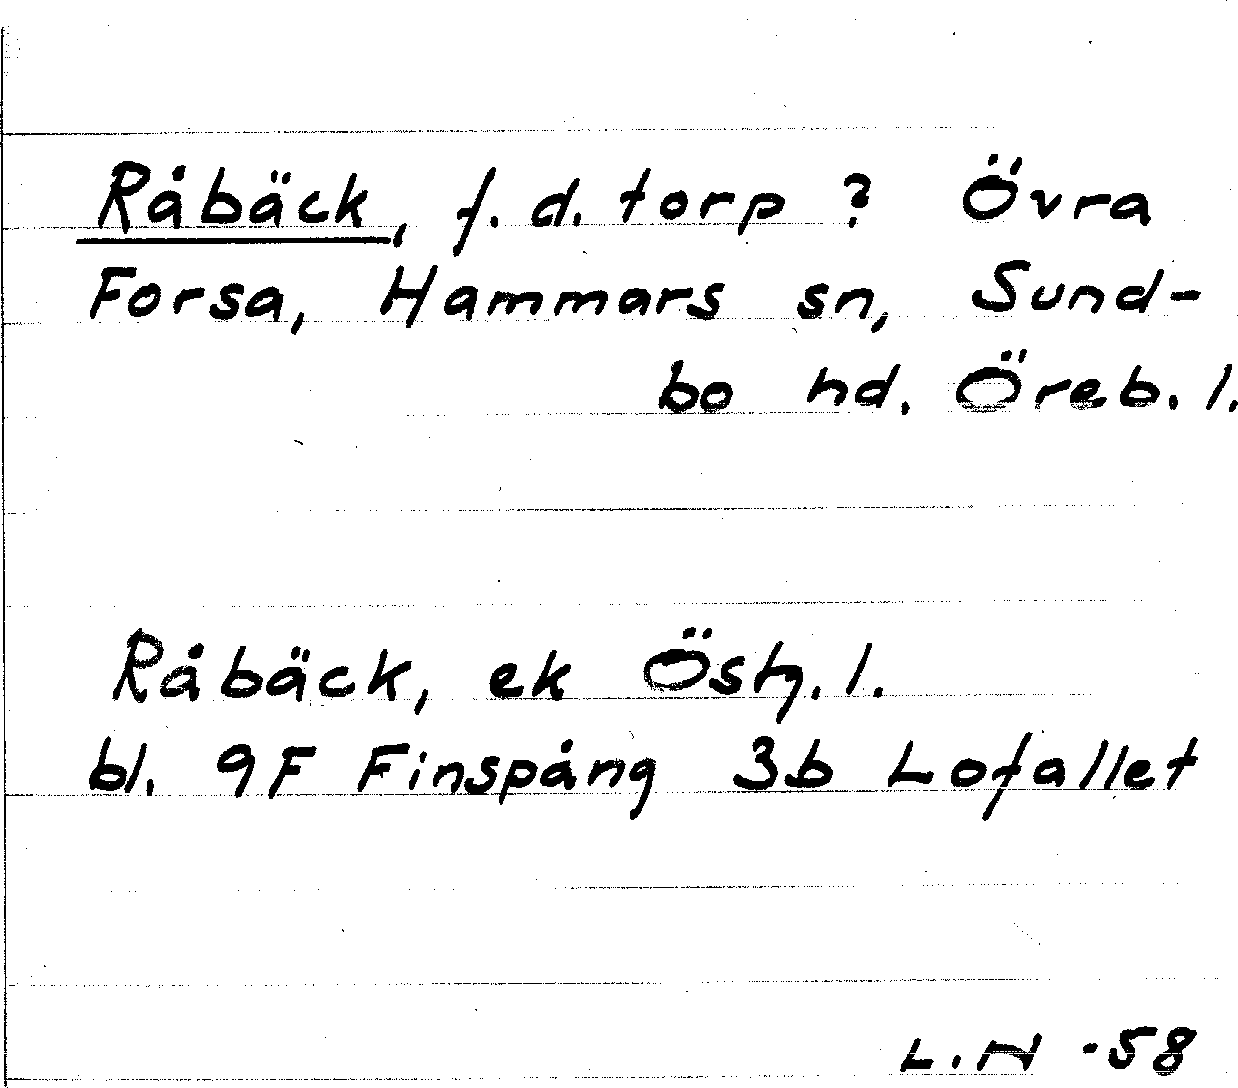 Råbäck, f.d. torp ? Övra
Forsa, Hammars sn, Sund-
bo hd. Öreb. l.
Råbäck, ek Östg. l.
bl. 9F Finspång 3b Lofallet
L.N -58